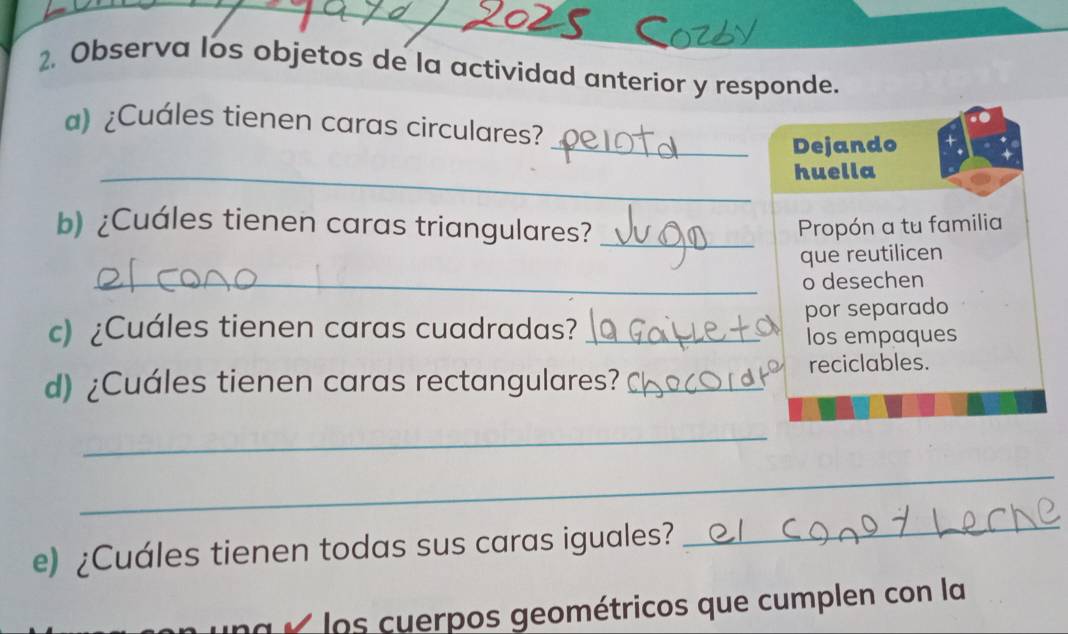 2025 Cozby
2. Observa los objetos de la actividad anterior y responde.
a) ¿Cuáles tienen caras circulares? pelota
b) ¿Cuáles tienen caras triangulares? Jugo
el cono
c) ¿Cuáles tienen caras cuadradas? la
d) ¿Cuáles tienen caras rectangulares?
e) ¿Cuáles tienen todas sus caras iguales? el cono y Leche
una ✓ los cuerpos geométricos que cumplen con la
Dejando
huella
Propón a tu familia
que reutilicen
o desechen
por separado
los empaques
reciclables.